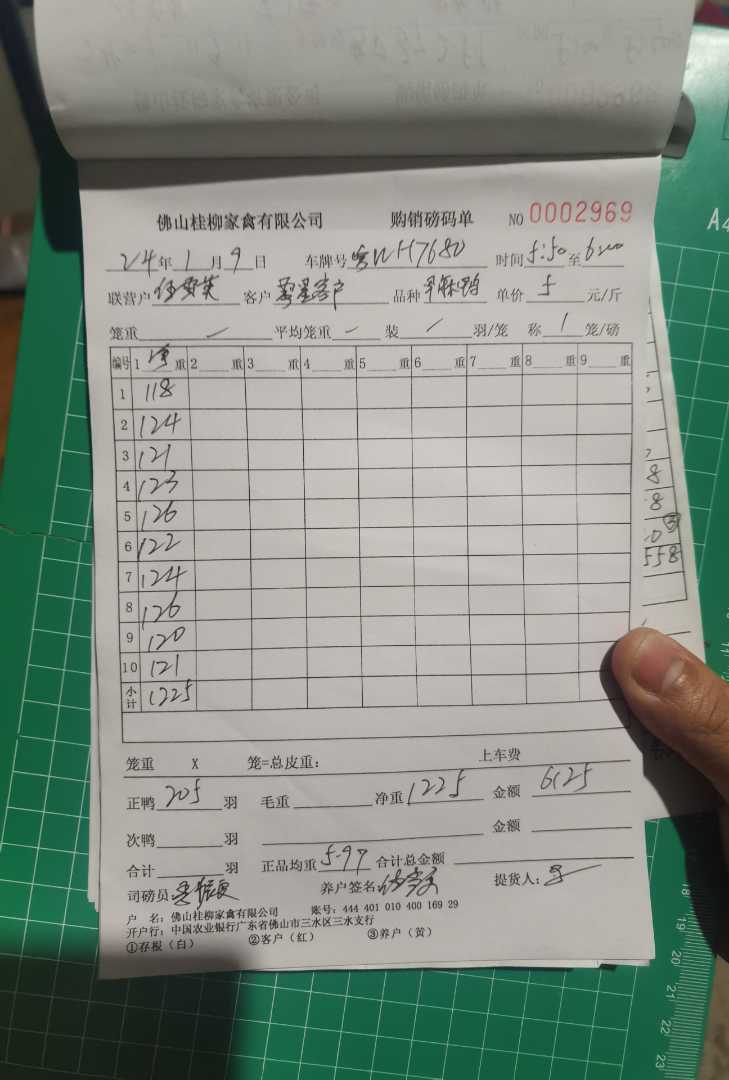 佛山桂柳家禽有限公司 购销磅码单 NO 0002969
24年 1月 9日 车牌号 粤WH7680 时间 5:50 至 6:00
联营户 客户 零星客户 品种 单价 5 元/斤
笼重 — 平均笼重 — 装 / 羽/笼 称 1 笼/磅
编号 1 净 重 2 重 3 重 4 重 5 重 6 重 7 重 8 重 9 重
1 118
2 124
3 121
4 123
5 126
6 122
7 124
8 126
9 120
10 121
小计 1225
笼重 X 笼=总皮重: 上车费
正鸭 205 羽 毛重 净重 1225 金额 6125
次鸭 羽 金额
合计 羽 正品均重 5.97 合计总金额
司磅员: 养户签名: 提货人:
户 名: 佛山桂柳家禽有限公司 账号: 444 401 010 400 169 29
开户行: 中国农业银行广东省佛山市三水区三水支行
①存报（白） ②客户（红） ③养户（黄）
8
8
558
A4
18
19
20
21
22
23